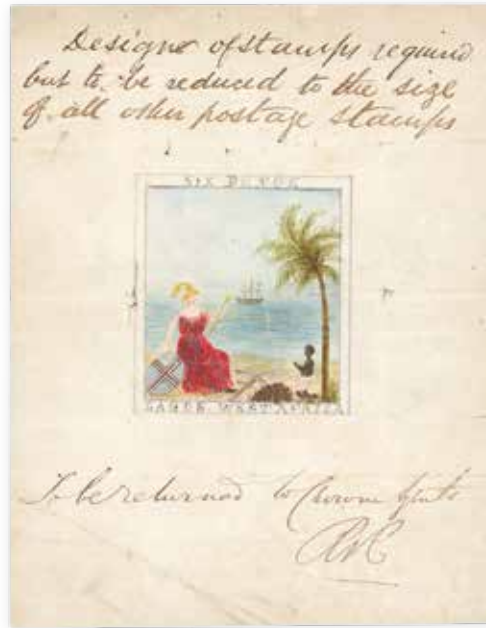 Designs of stamps required
but to be reduced to the size
of all other postage stamps
SIX PENCE
LAGOS WEST AFRICA
To be returned to Crown Agents